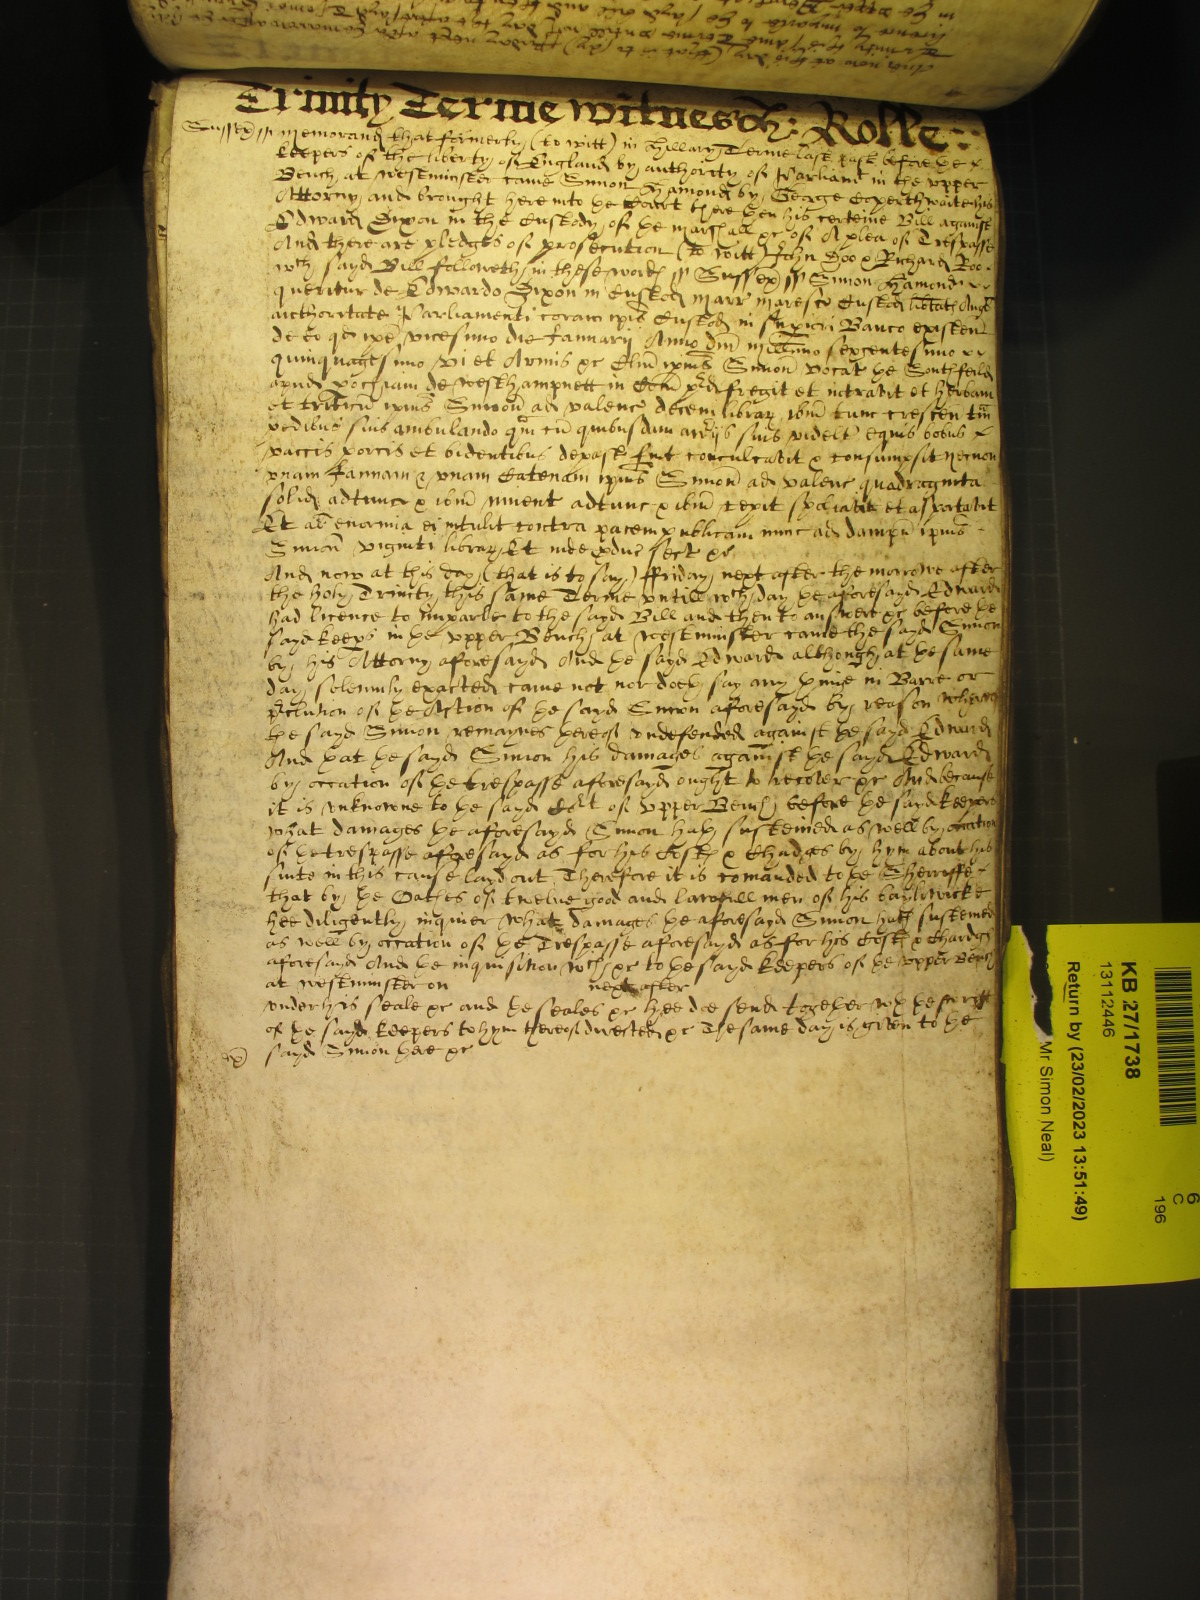 Trinity Terme witnes &c: Rolle:
Sussex ss Memorand that formerly (to witt) in Hillary Terme last past before the
keepers of the liberty of England by authority of Parliamt in the vpper
Bench at Westminster came Simon Hamond by George Copperthwaite his
Attorny and brought here into the Court there then his certeine Bill against
Edward Dixon in the Custody of the marshall &c of A plea of Trespasse
And there are pledges of prosecution (to witt) John Doo & Richard Roo
wch sayd Bill followeth in these words ss Sussex ss Simon Hamond
queritur de Edwardo Dixon in Custod marr maresc Custod libtatis Angl
authoritate Parliamenti coram ipis Custod in supiori Banco existen
de eo qd ipe vicesimo die Januarij Anno dni millimo sexcentesimo
quinquagesimo vi et Armis &c Clm ipius Simon vocat the Southfeild
apud pochiam de Westhampnett in Com pd fregit et intravit et herbam
et triticu ipius Simon ad valenc decem librar ibm tunc crescen tm
pedibus suis ambulando qm cu quibusdam averijs suis videlt equis bobus
vaccis porcis et bidentibus depast fuit conculcavit & consumpsit necnon
vnam fannam & vnam Catenam ipius Simon ad valenc quadraginta
solid adtunc & ibm invent adtunc & ibm cepit spoliavit et asportavit
Et al enormia ei intulit contra pacem publicam nunc ad dampn ipius
Simon viginti librar Et inde pduc sect &c
And now at this day (that is to say) Friday next after the morrowe after
the holy Trinity this same Terme vntill wch day the aforesayd Edward
had licence to imparle to the sayd Bill and then to answere &c before the
sayd keeps in the vpper Bench at Westminster came the sayd Simon
by his Attorny aforesayd And the sayd Edward although at the same
day solemnly exacted came not nor doth say any thinge in Barre or
pclusion of the Action of the sayd Simon aforesayd by reason whereof
the sayd Simon remaynes thereof vndefended against the sayd Edward
And that the sayd Simon his damages against the sayd Edward
by occation of the trespasse aforesayd ought to recover &c And because
it is vnknowne to the sayd Cort of vpper Bench before the sayd keepers
what damages the aforesayd Simon hath susteined as well by occation
of the trespasse aforesayd as for his Costs & Chardges by hym about his
suite in this cause layd out Therefore it is comanded to the Sherriffe
that by the Oathes of twelve good and lawfull men of his bayliwicke
hee diligently inquier what damages the aforesayd Simon hath susteined
as well by occation of the Trespasse aforesayd as for his Costs & Chardgs
aforesayd And the inquisition wch &c to the sayd keepers of the vpper Bench
at Westminster on next after
vnder his seale &c and the seales &c hee doe send together wth the writt
of the sayd keepers to hym thereof directed &c The same day is given to the
sayd Simon here &c
KB 27/1738
13112446
Return by (23/02/2023 13:51:49)
Mr Simon Neal)
6
C
196